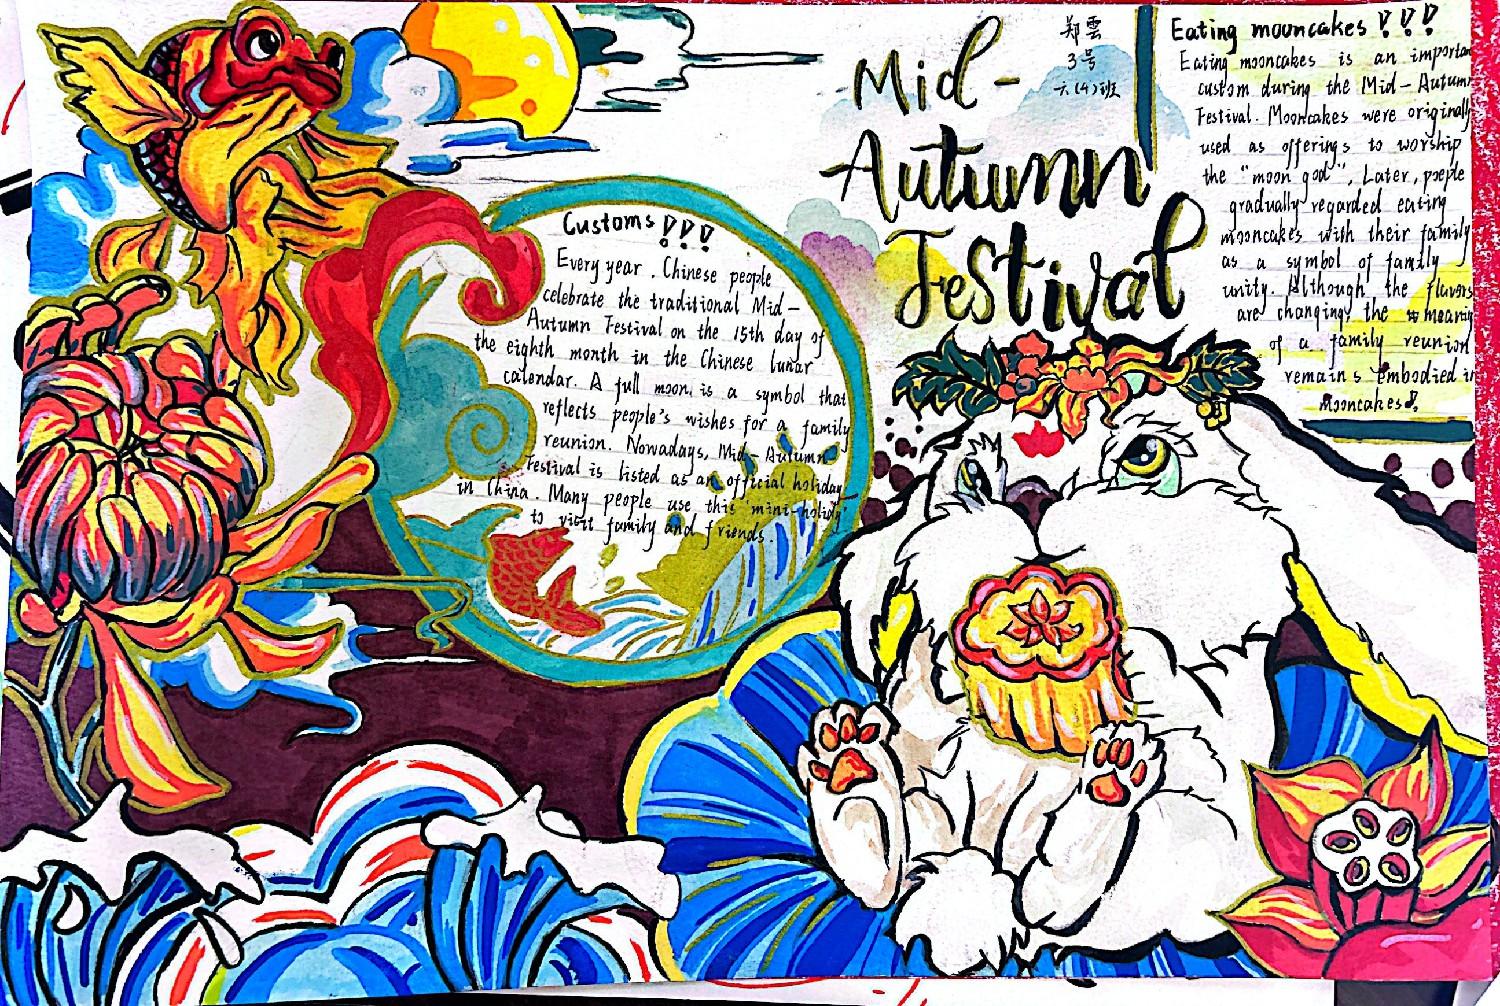 Mid-
Autumn
Festival
郑雲
3号
六(4)班
Customs!!!
Every year, Chinese people
celebrate the traditional Mid-
Autumn Festival on the 15th day of
the eighth month in the Chinese lunar
calendar. A full moon is a symbol that
reflects people's wishes for a family
reunion. Nowadays, Mid-Autumn
Festival is listed as an official holiday
in China. Many people use this "mini-holiday"
to visit family and friends.
Eating mooncakes!!!
Eating mooncakes is an important
custom during the Mid-Autumn
Festival. Mooncakes were originally
used as offerings to worship
the "moon god". Later, poeple
gradually regarded eating
mooncakes with their family
as a symbol of family
unity. Although the flavors
are changing, the meaning
of a family reunion
remains embodied in
mooncakes!